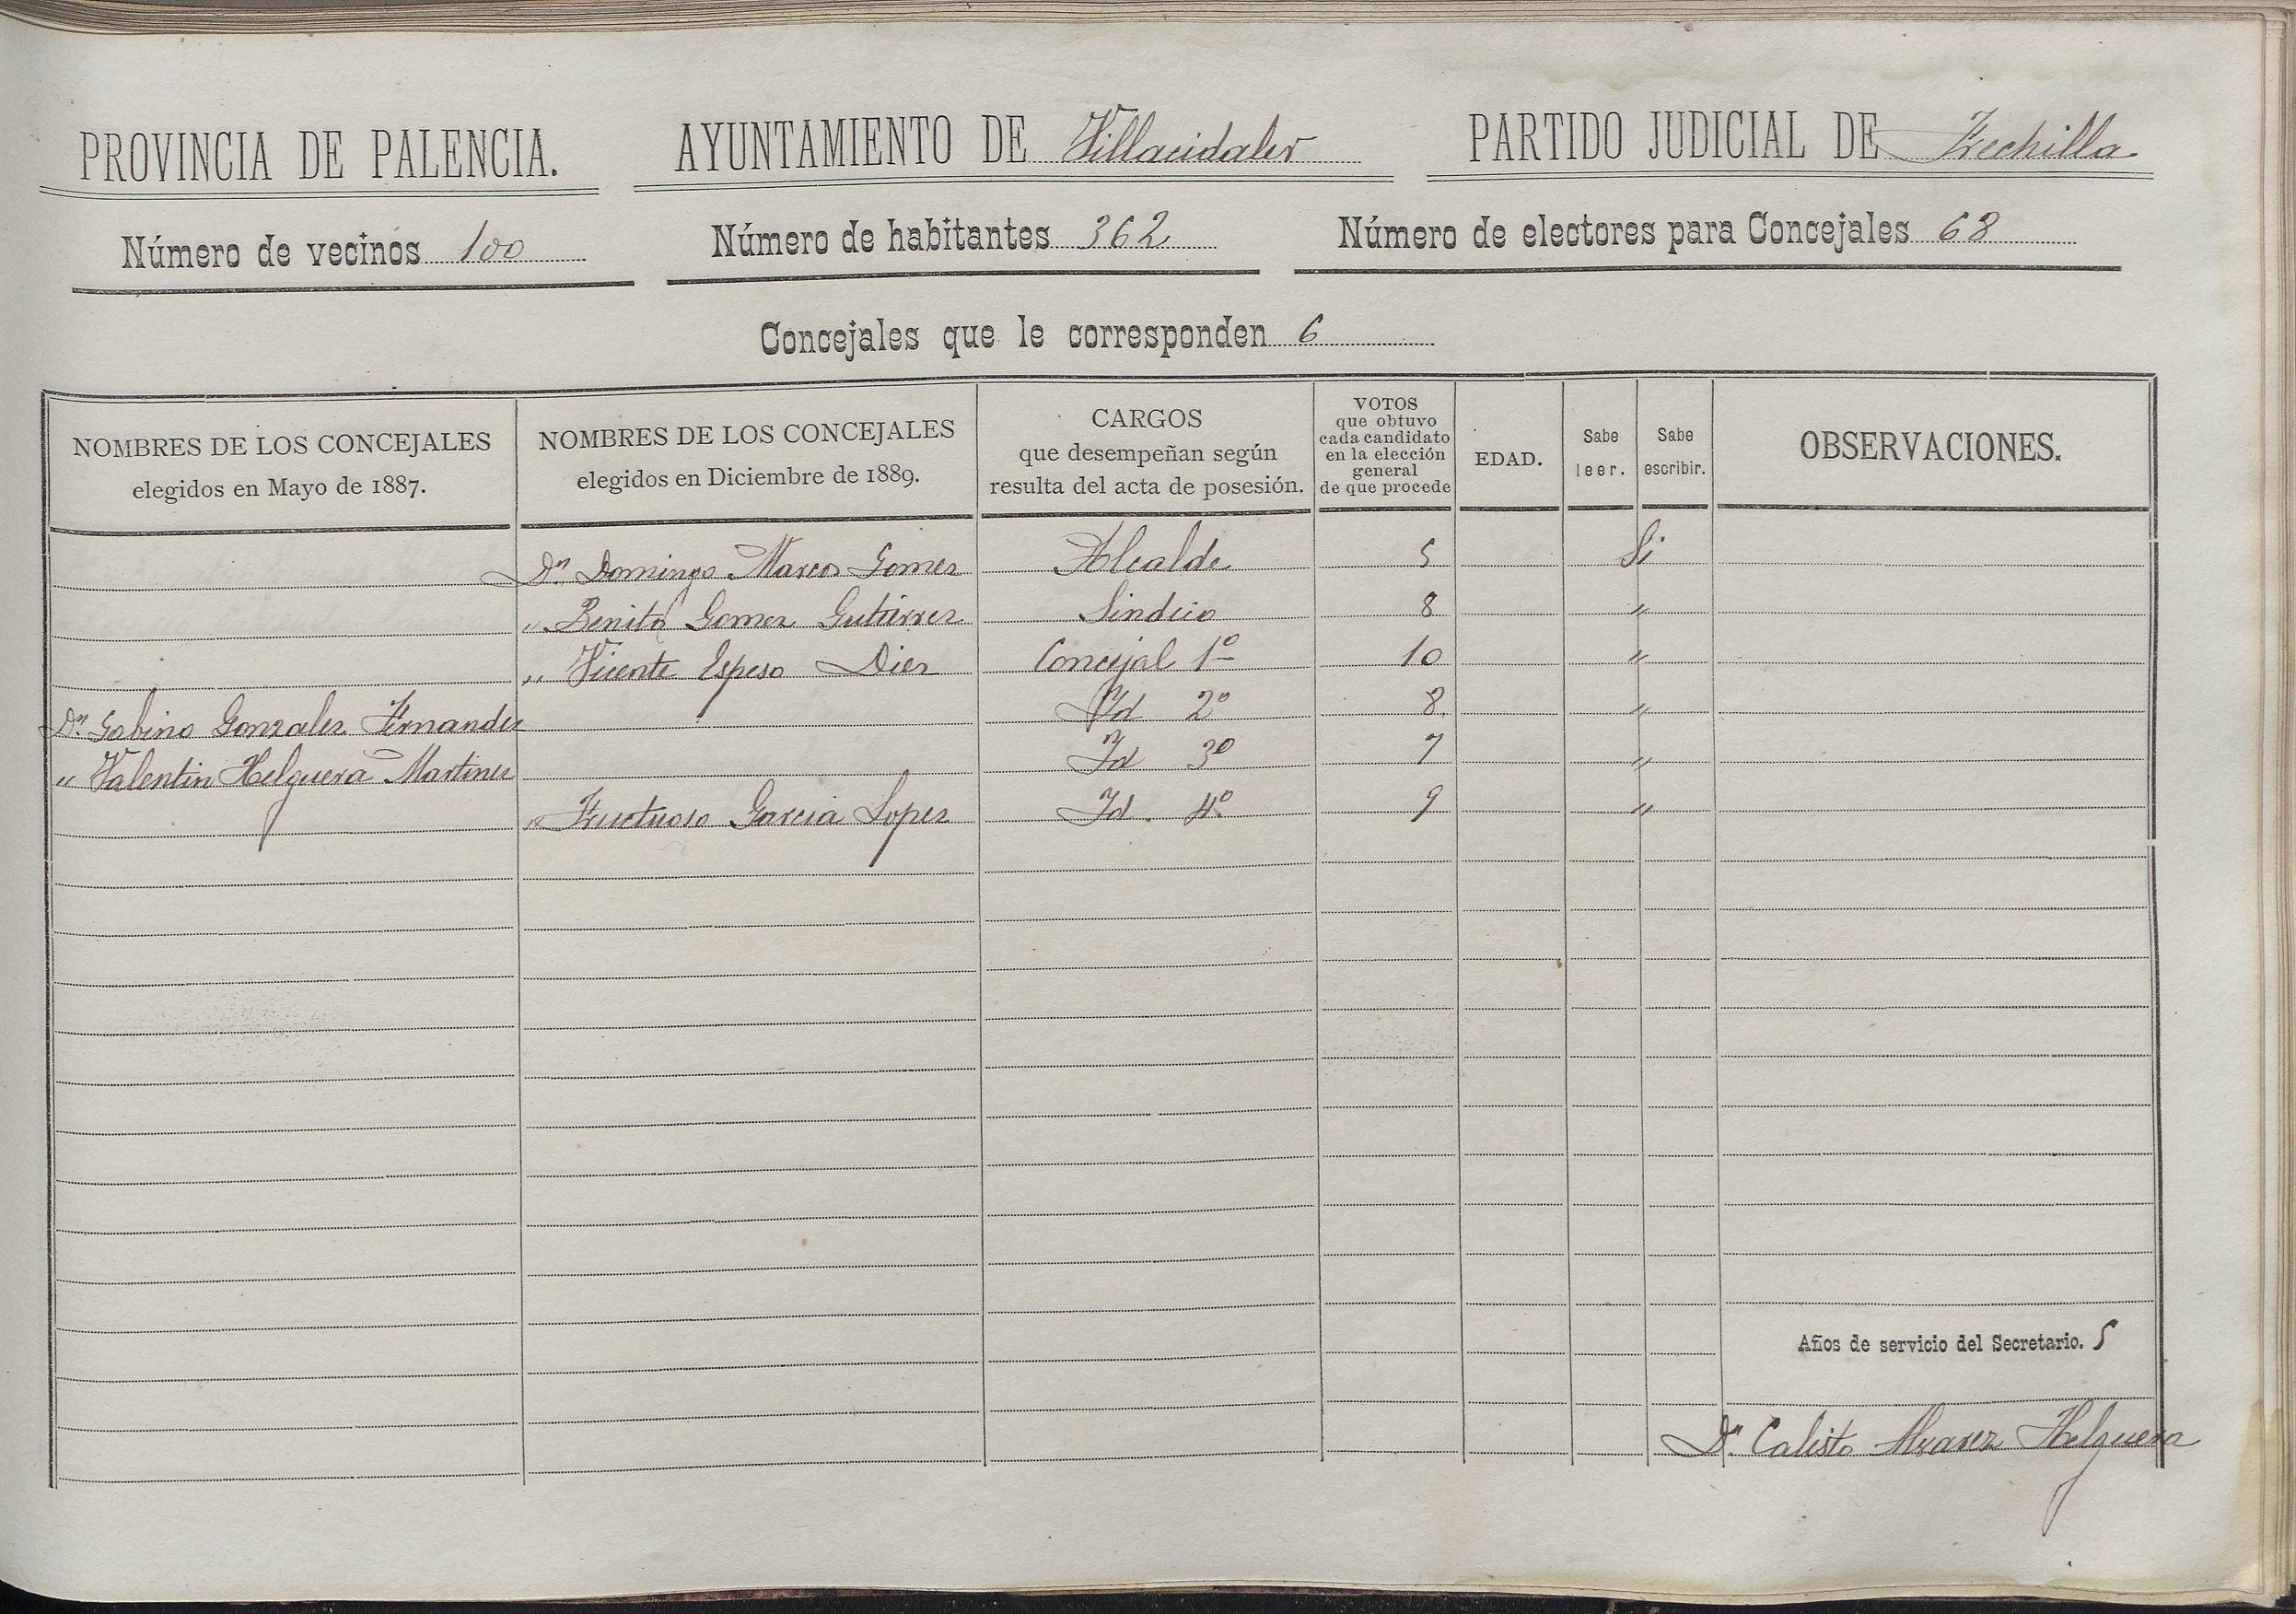 PROVINCIA DE PALENCIA. AYUNTAMIENTO DE Villacidaler PARTIDO JUDICIAL DE Frechilla
Número de vecinos 100 Número de habitantes 362 Número de electores para Concejales 68
Concejales que le corresponden 6
NOMBRES DE LOS CONCEJALES
elegidos en Mayo de 1887.
NOMBRES DE LOS CONCEJALES
elegidos en Diciembre de 1889.
CARGOS
que desempeñan según
resulta del acta de posesión.
VOTOS
que obtuvo
cada candidato
en la elección
general
de que procede
EDAD.
Sabe
leer.
Sabe
escribir.
OBSERVACIONES.
Dn. Domingo Marcos Gomez Alcalde 5 Si
" Benito Gomez Gutierrez Sindico 8 "
" Vicente Espeso Diez Concejal 1º 10 "
Dn. Gabino Gonzalez Fernandez Id 2º 8 "
" Valentin Helguera Martinez Id 3º 7 "
" Fructuoso Garcia Lopez Id. 4º 9 "
Años de servicio del Secretario. 5
Dn. Calisto Alvarez Helguera